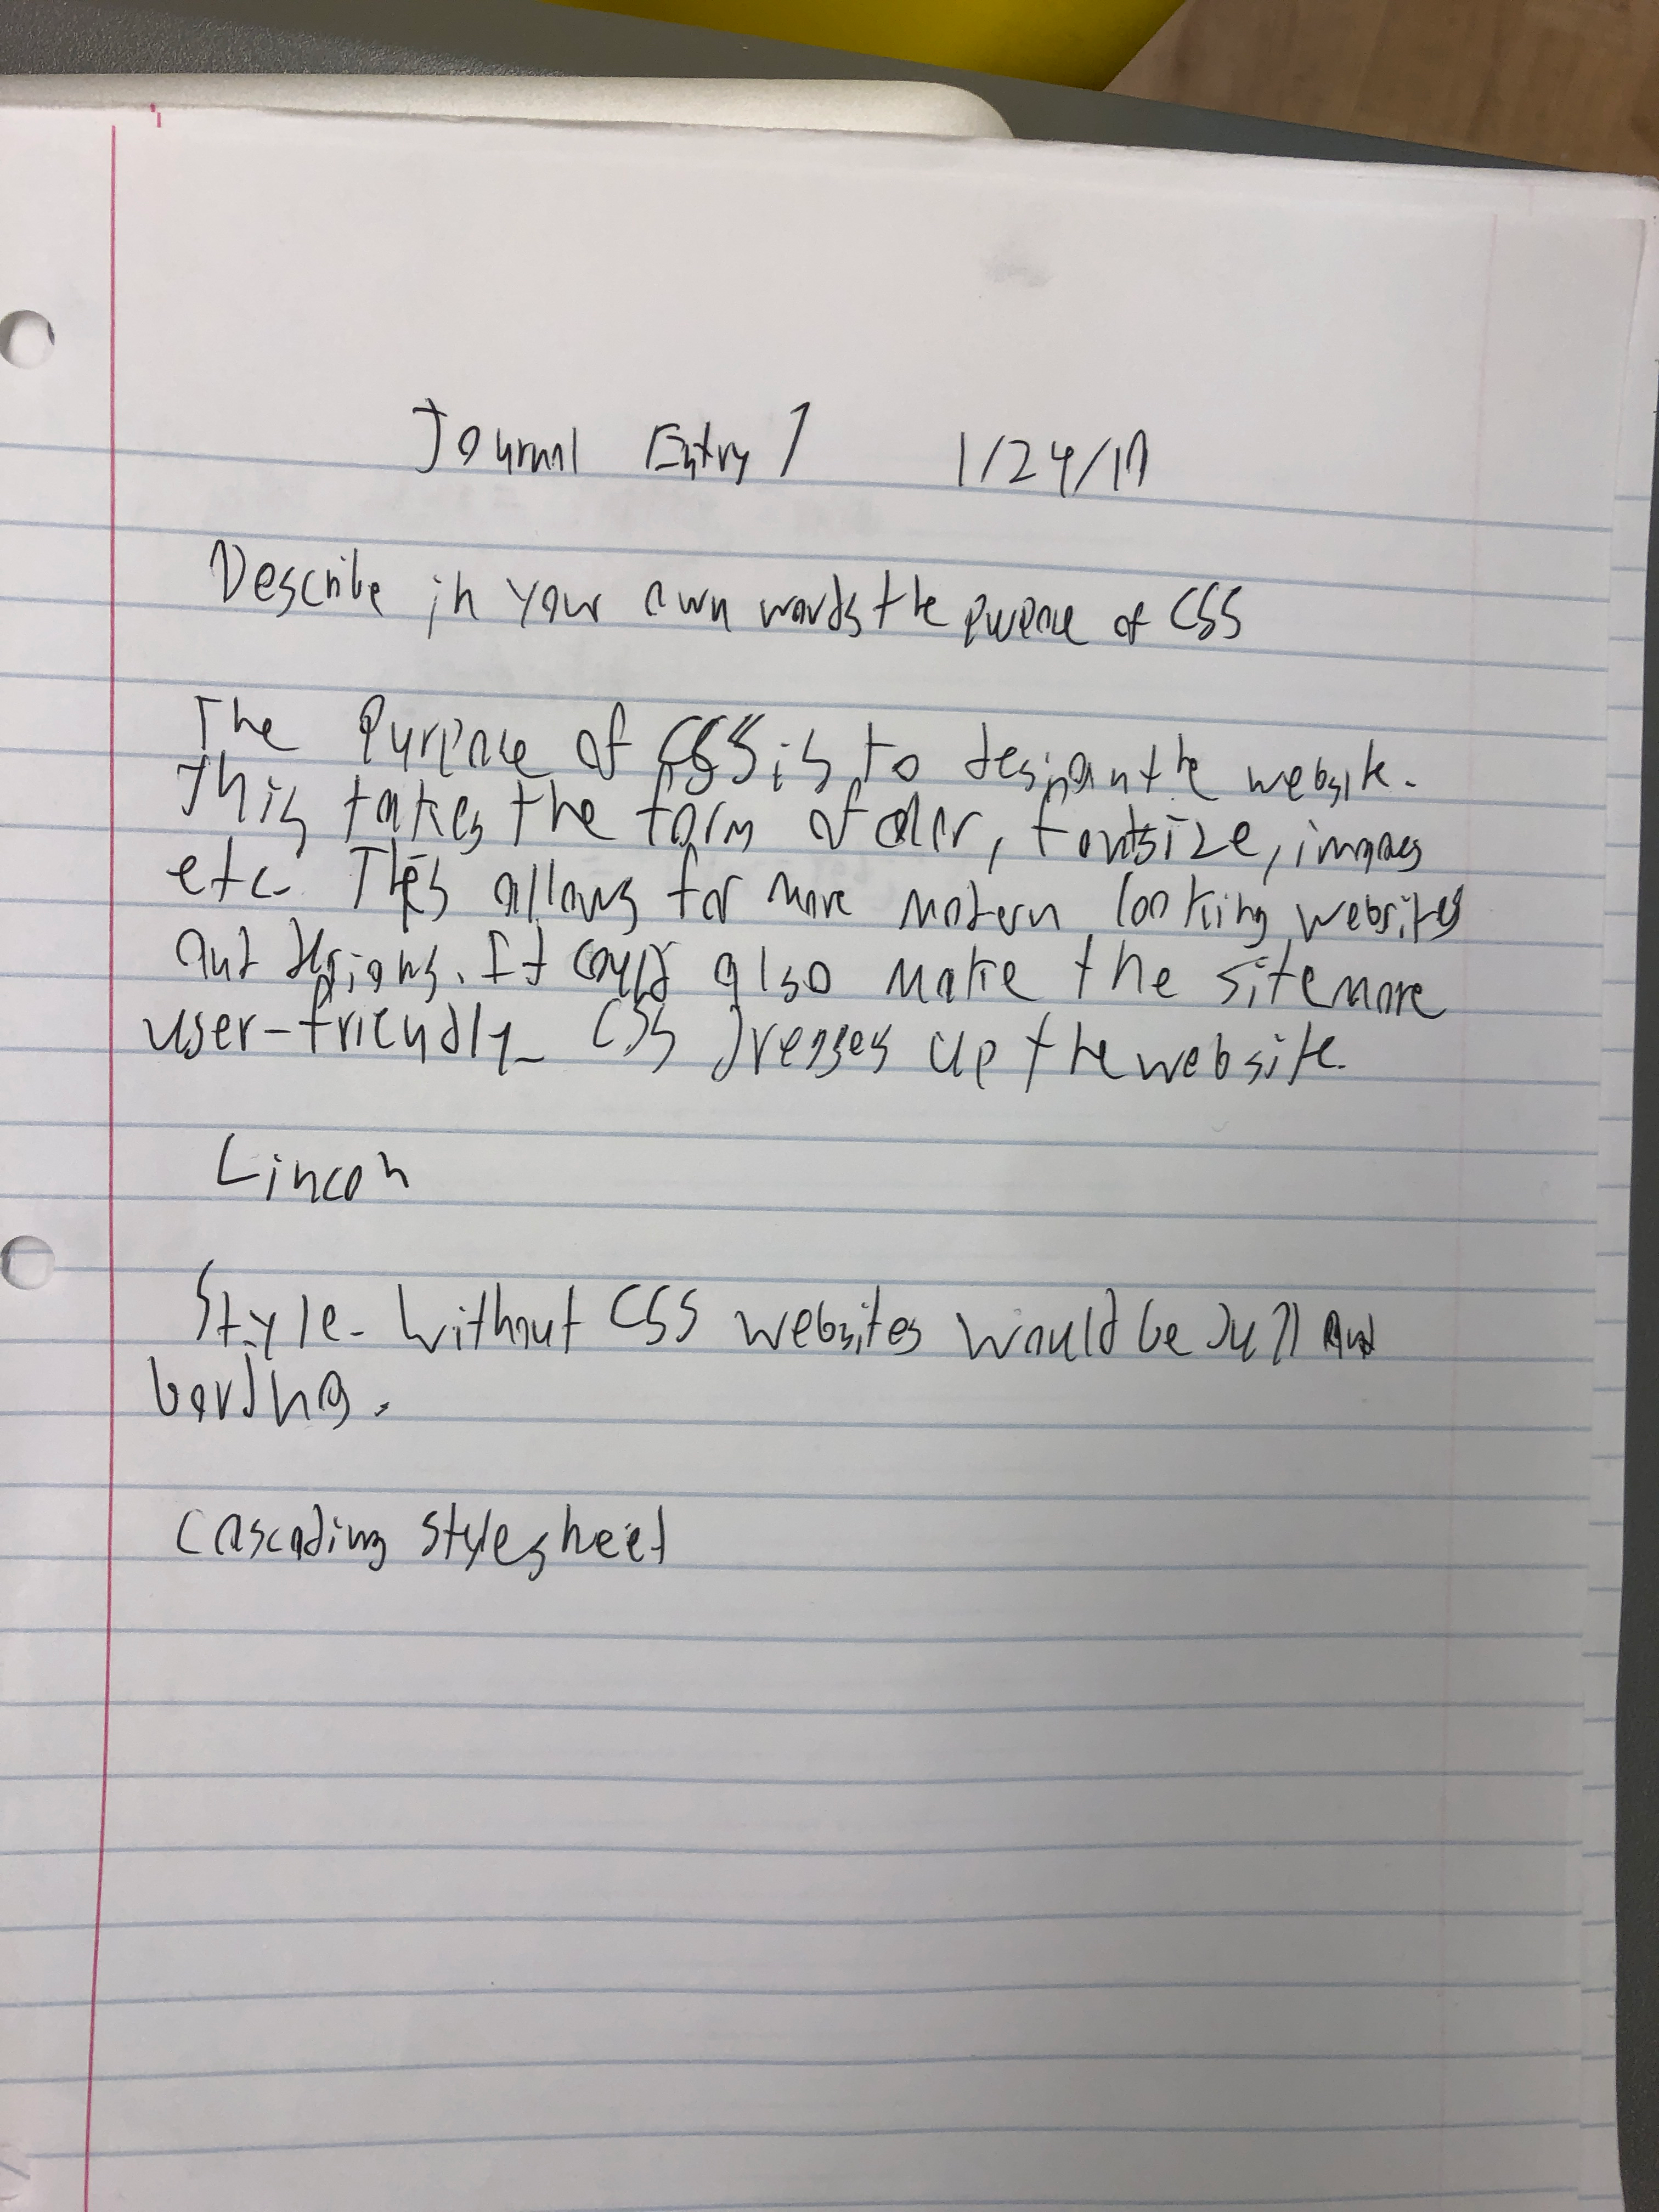 Journal Entry 1 1/24/19
Describe in your own words the purpose of CSS
The Purpose of CSS is to design the website.
This takes the form of color, fontsize, images
etc. This allows for more modern looking websites
and designs. It could also make the site more
user-friendly. CSS dresses up the website.
Lincon
Style. Without CSS websites would be dull and
boring.
Cascading stylesheet